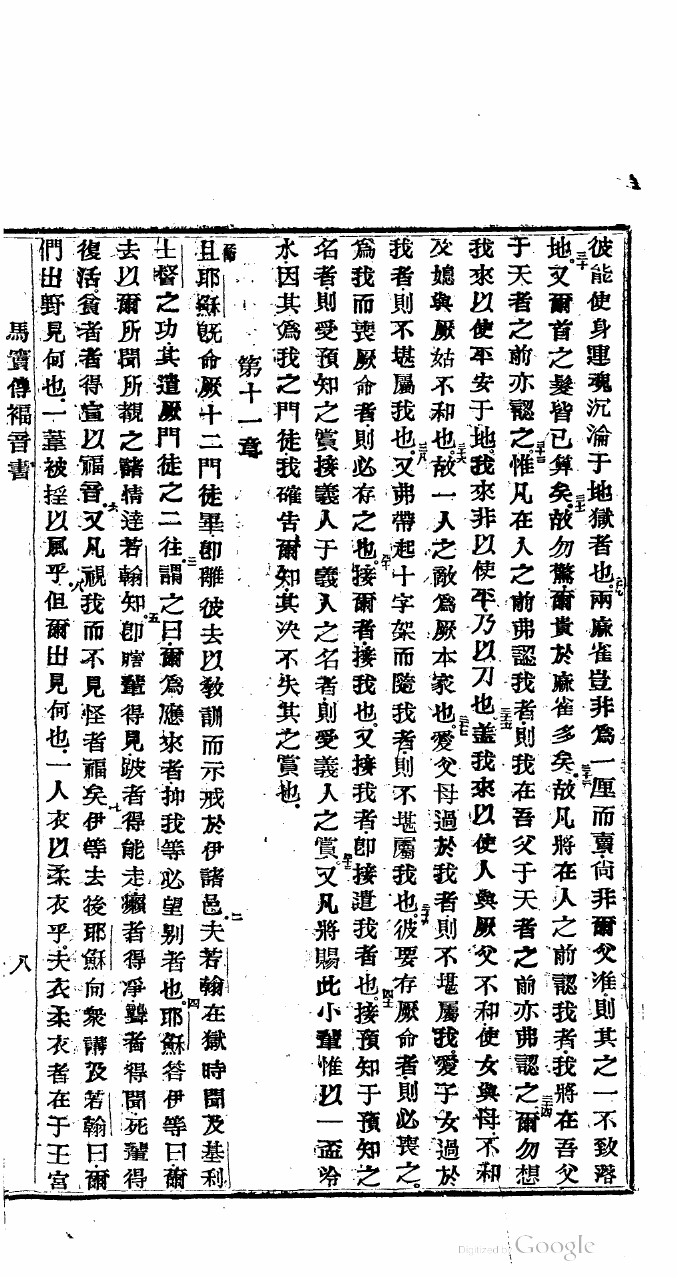 彼能使身連魂沉淪于地獄者也。二十九兩麻雀豈非為一厘而賣尙非爾父准則其之一不致落
地。三十又爾首之髮皆已算矣。三十一故勿驚爾貴於麻雀多矣。三十二故凡將在人之前認我者我將在吾父
于天者之前亦認之。三十三惟凡在人之前弗認我者則我在吾父于天者之前亦弗認之。三十四爾勿想
我來以使平安于地。我來非以使平乃以刀也。三十五蓋我來以使人與厥父不和使女與母不和
及媳與厥姑不和也。三十六故一人之敵為厥本家也。三十七愛父母過於我者則不堪屬我。愛子女過於
我者則不堪屬我也。三十八又弗帶起十字架而隨我者則不堪屬我也。三十九彼要存厥命者則必喪之。
為我而喪厥命者則必存之也。四十接爾者接我也。又接我者卽接遣我者也。四十一接預知于預知之
名者則受預知之賞接義人于義人之名者則受義人之賞。四十二又凡將賜此小輩惟以一盃冷
水因其為我之門徒我確告爾知其决不失其之賞也。
第十一章
且耶穌旣命厥十二門徒畢卽離彼去以敎訓而示戒於伊諸邑。二夫若翰在獄時聞及基利
士督之功其遣厥門徒之二往。三謂之曰爾為應來者抑我等必望別者也。四耶穌答伊等曰爾
去以爾所聞所視之諸情達若翰知。五卽瞎輩得見跛者得能走癩者得凈聾者得聞死輩得
復活貧者者得宣以福音。六又凡視我而不見怪者福矣。七伊等去後耶穌向衆講及若翰曰爾
們出野見何也。一葦被搖以風乎。八但爾出見何也。一人衣以柔衣乎。夫衣柔衣者在于王宮
馬竇傳福音書 八
Digitized by Google